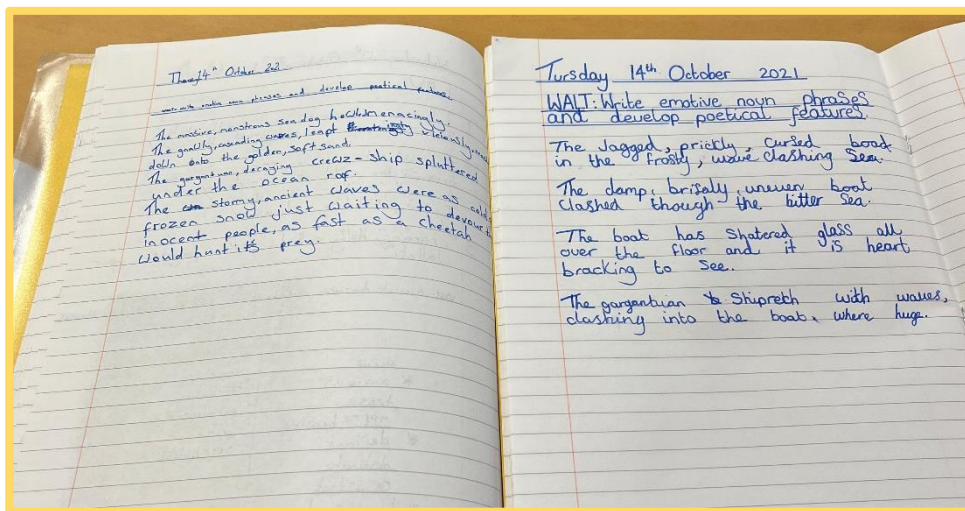 14th October
write emotive noun phrases and develop poetical features.
The massive, monstrous sea dog howls menacingly.
The gnarly, cascading waves, leapt viciously,
down onto the golden, soft sand.
The gargantuan, decaying creuz-ship spluttered
under the ocean rof.
The stormy, ancient waves were as cold
frozen snow just waiting to devour
inocent people, as fast as a cheetah
would hunt it's prey.
Tursday 14th October 2021
WALT: Write emotive noun phrases
and develop poetical features.
The Jagged, prickly, cursed boad
in the frosty, wave clashing Sea.
The damp, brisaly, uneven boat
Clashed though the bitter Sea.
The boat has Shatered glass all
over the floor and it is heart
bracking to See.
The gargantuian Shipreth with waves,
clashing into the boat, where huge.